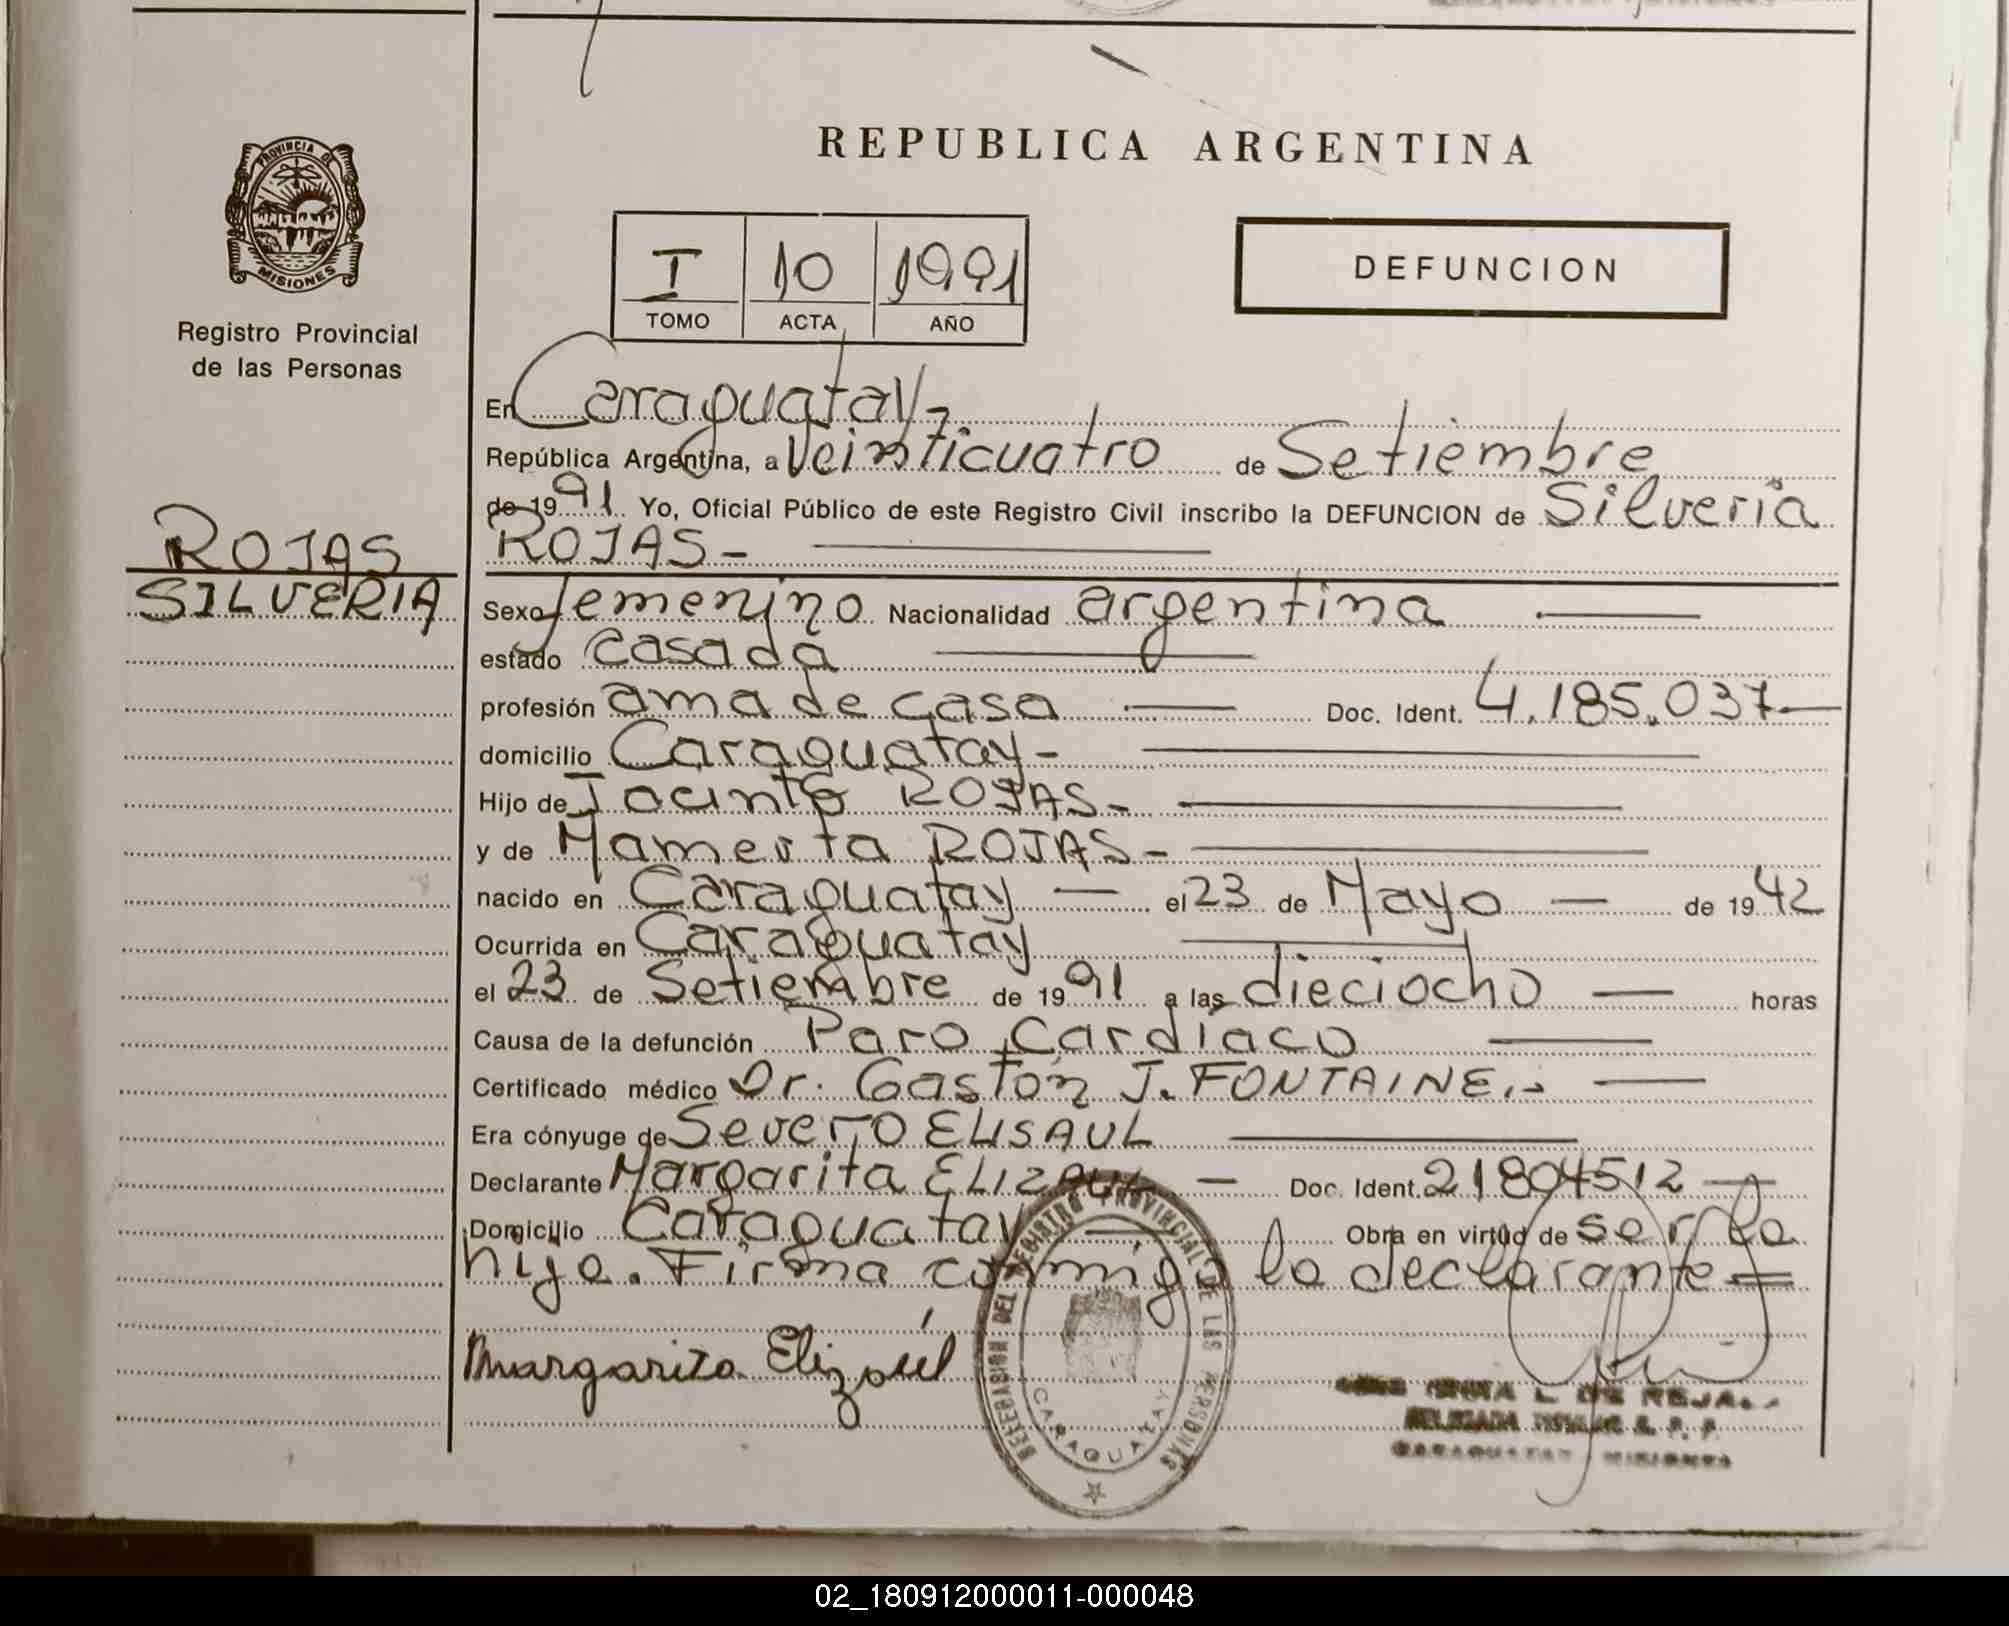 PROVINCIA DE
MISIONES
Registro Provincial
de las Personas
ROJAS
SILVERIA
REPUBLICA ARGENTINA
I 10 1991
TOMO ACTA AÑO
DEFUNCION
En Caraguatay-
República Argentina, a Veinticuatro de Setiembre
de 19 91 Yo, Oficial Público de este Registro Civil inscribo la DEFUNCION de Silveria
ROJAS-
Sexo femenino Nacionalidad argentina
estado casada
profesión ama de casa Doc. Ident. 4.185.037
domicilio Caraguatay-
Hijo de Jacinto ROJAS-
y de Mamerta ROJAS-
nacido en Caraguatay el 23 de Mayo de 19 42
Ocurrida en Caraguatay
el 23 de Setiembre de 19 91 a las dieciocho horas
Causa de la defunción Paro Cardíaco
Certificado médico Dr. Gastón J. FONTAINE.-
Era cónyuge de Severo ELISAUL
Declarante Margarita ELIZAUL Doc. Ident. 21804512
Domicilio Caraguatay Obra en virtud de ser la
hija. Firma conmigo la declarante=
Margarita Elizaúl
DELEGACION DEL REGISTRO PROVINCIAL DE LAS PERSONAS
CARAGUATAY
L. DE REJALA
DELEGADA TITULAR R. P. P.
CARAGUATAY MISIONES
02_180912000011-000048